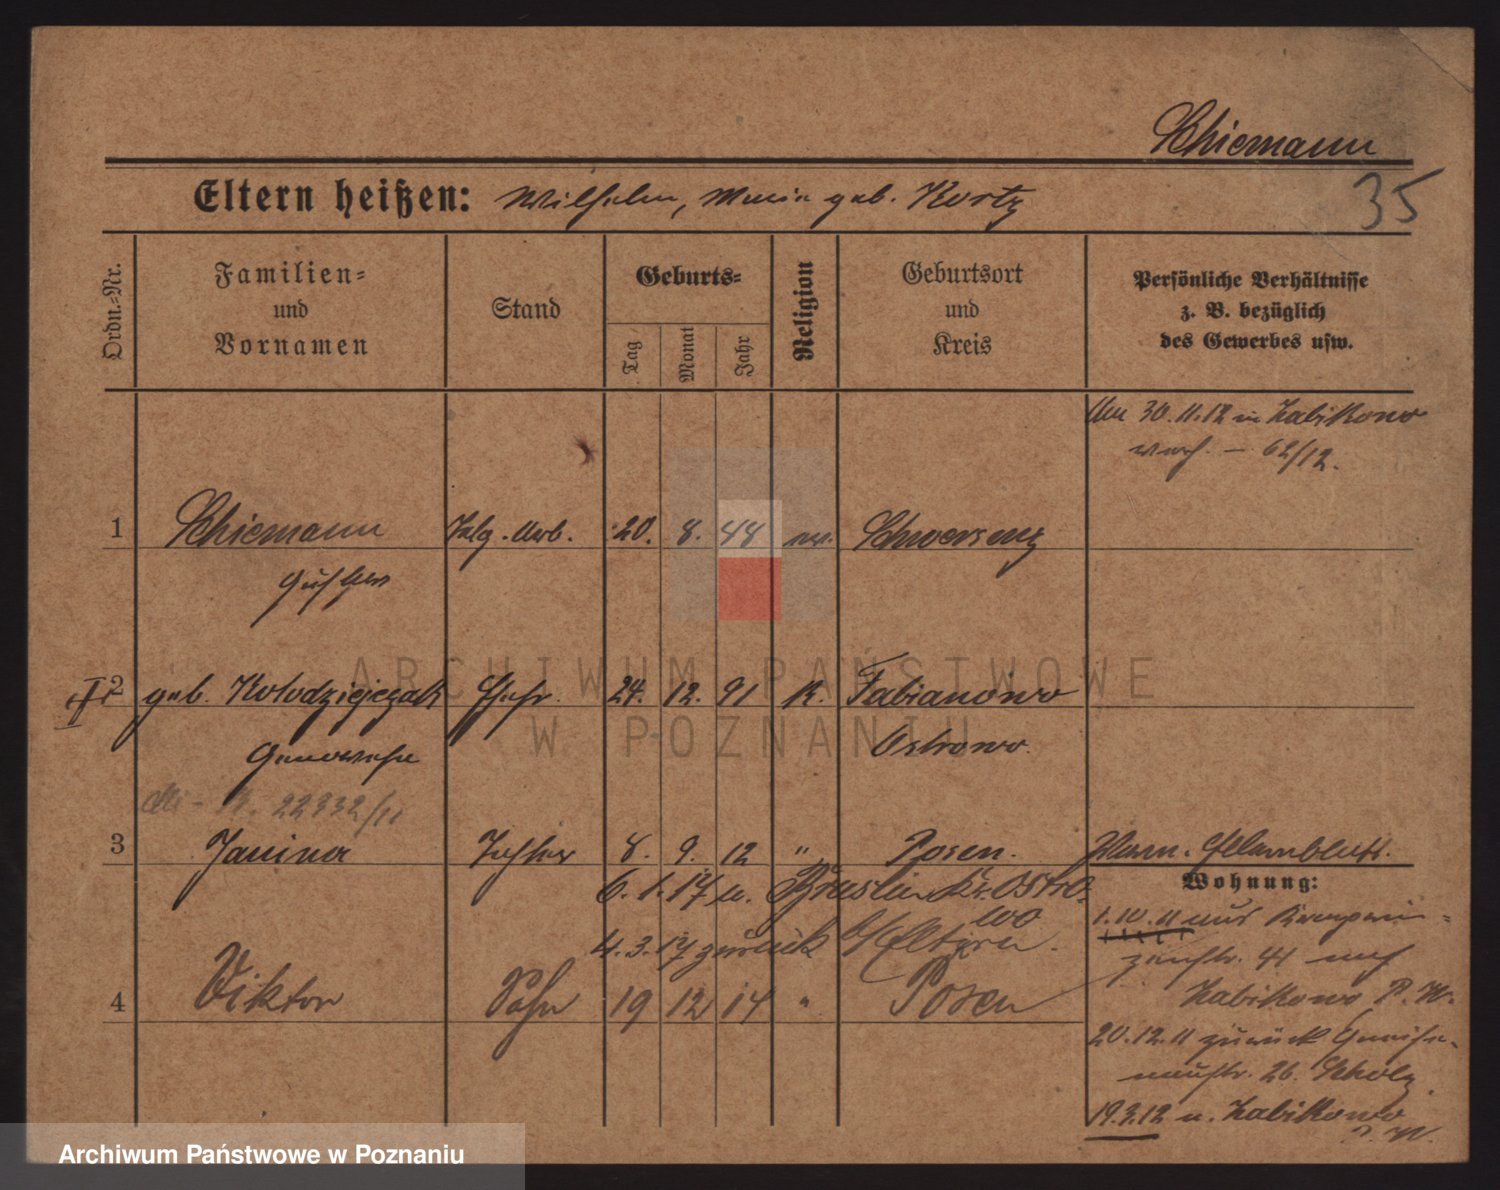 Schiemann
35
Eltern heißen: Wilhelm, Maria geb. Kortz
Ordn.-Nr.
Familien-
und
Vornamen
Stand
Geburts-
Tag
Monat
Jahr
Religion
Geburtsort
und
Kreis
Persönliche Verhältnisse
z. B. bezüglich
des Gewerbes usw.
Am 30.11.12 in Zabikowo
verh. – 62/12.
1 Schiemann 20. 8. 48 ev. Schwersenz
Gustav
II 2 geb. Kolodziejczak Ehefr. 24. 12. 91 K. Fabianowo
Genowefa Ostrowo.
22332/11
3 Janina Tochter 8. 9. 12 " Posen.
6.1.17 n. Kr. Ostro-
wo
4.3.17 zurück b/Eltern.
4 Viktor Sohn 19 12 14 " Posen
Wohnung:
1.10.11 aus
41 nach
Zabikowo P. W.
20.12.11 zurück Gneise-
naustr. 26. Scholz
19.3.12 n. Zabikowo
P. W.
ARCHIWUM PAŃSTWOWE
W POZNANIU
Archiwum Państwowe w Poznaniu